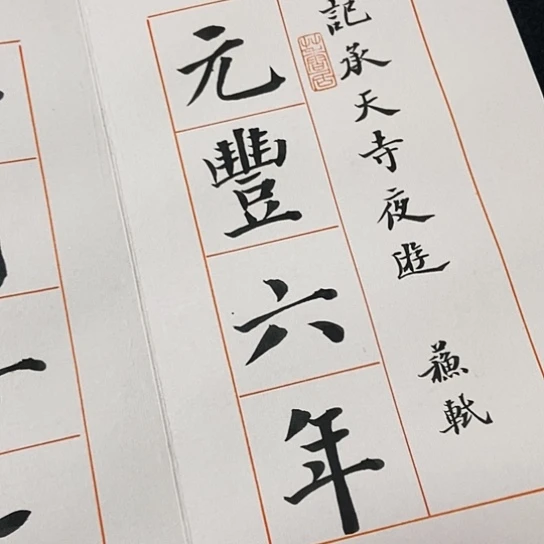 記承天寺夜遊 蘇軾
元豐六年